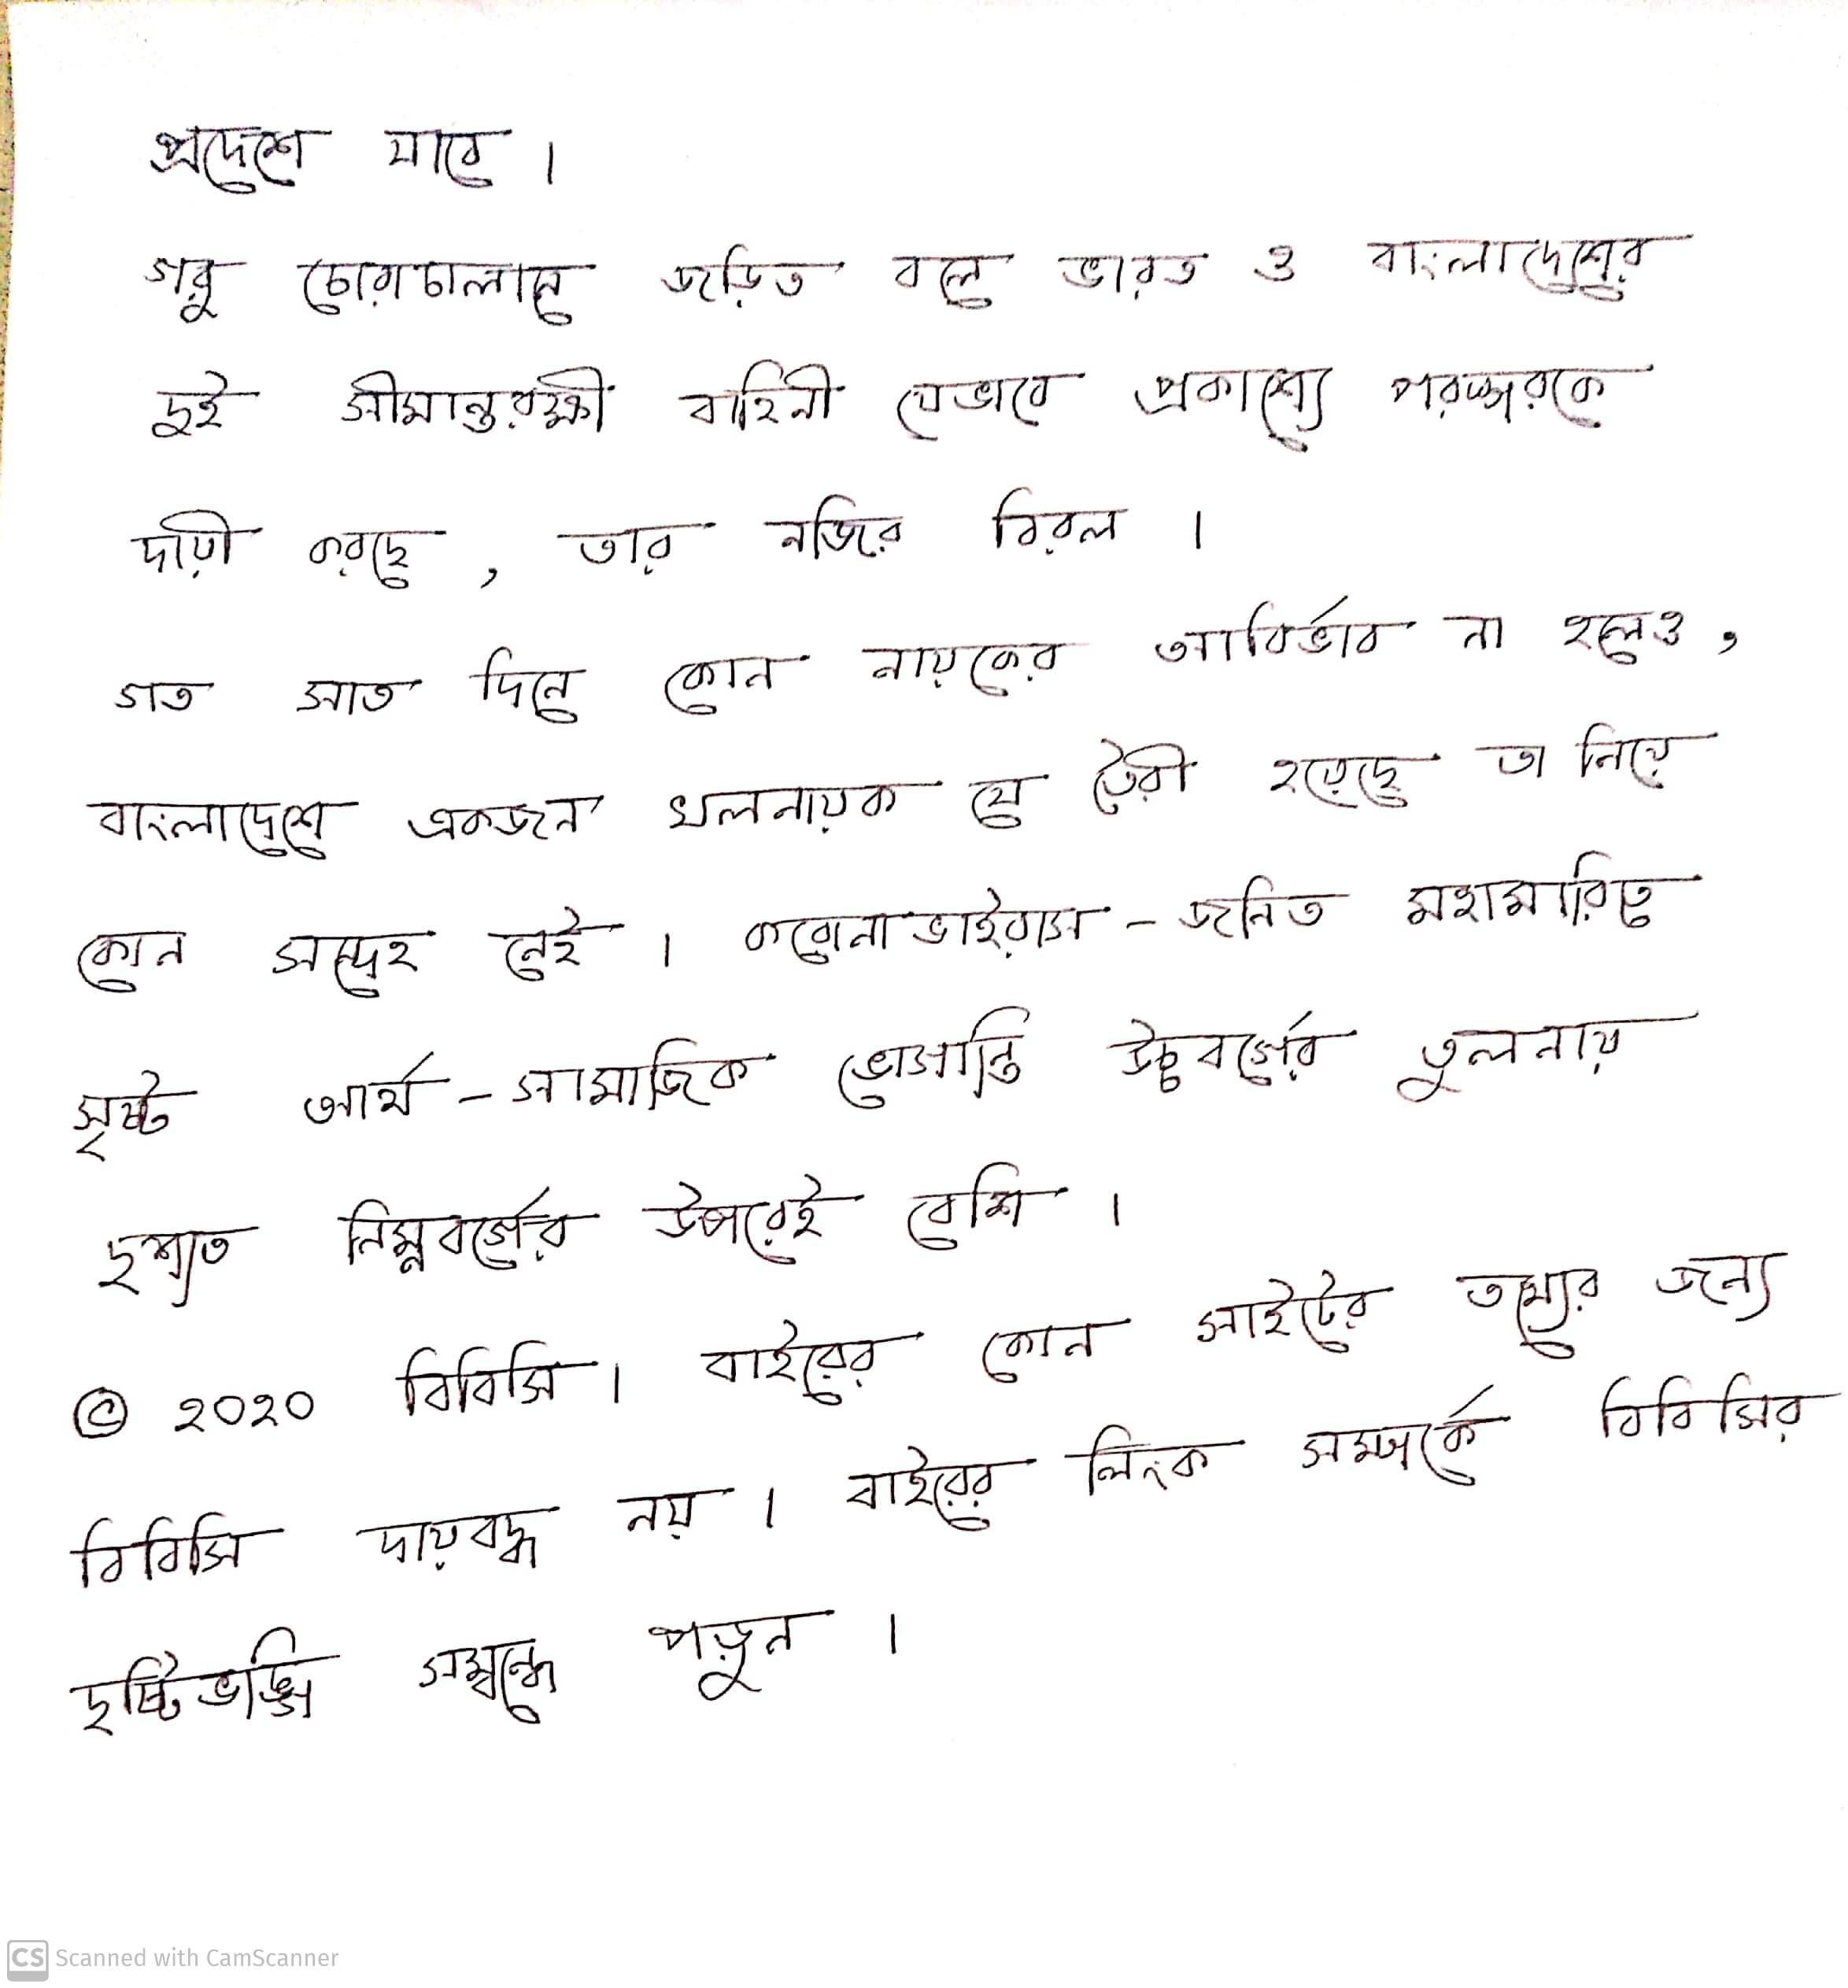 প্রদেশে যাবে ।
গরু চোরাচালানে জড়িত বলে ভারত ও বাংলাদেশের
দুই সীমান্তরক্ষী বাহিনী যেভাবে প্রকাশ্যে পরস্পরকে
দায়ী করছে , তার নজির বিরল ।
গত সাত দিনে কোন নায়কের আবির্ভাব না হলেও ,
বাংলাদেশে একজন খলনায়ক যে তৈরী হয়েছে তা নিয়ে
কোন সন্দেহ নেই । করোনাভাইরাস - জনিত মহামারিতে
সৃষ্ট আর্থ - সামাজিক ভোগান্তি উচ্চবর্গের তুলনায়
দৃশ্যত নিম্নবর্গের উপরেই বেশি ।
© ২০২০ বিবিসি । বাইরের কোন সাইটের তথ্যের জন্য
বিবিসি দায়বদ্ধ নয় । বাইরের লিংক সম্পর্কে বিবিসির
দৃষ্টিভঙ্গি সম্বন্ধে পড়ুন ।
CS Scanned with CamScanner